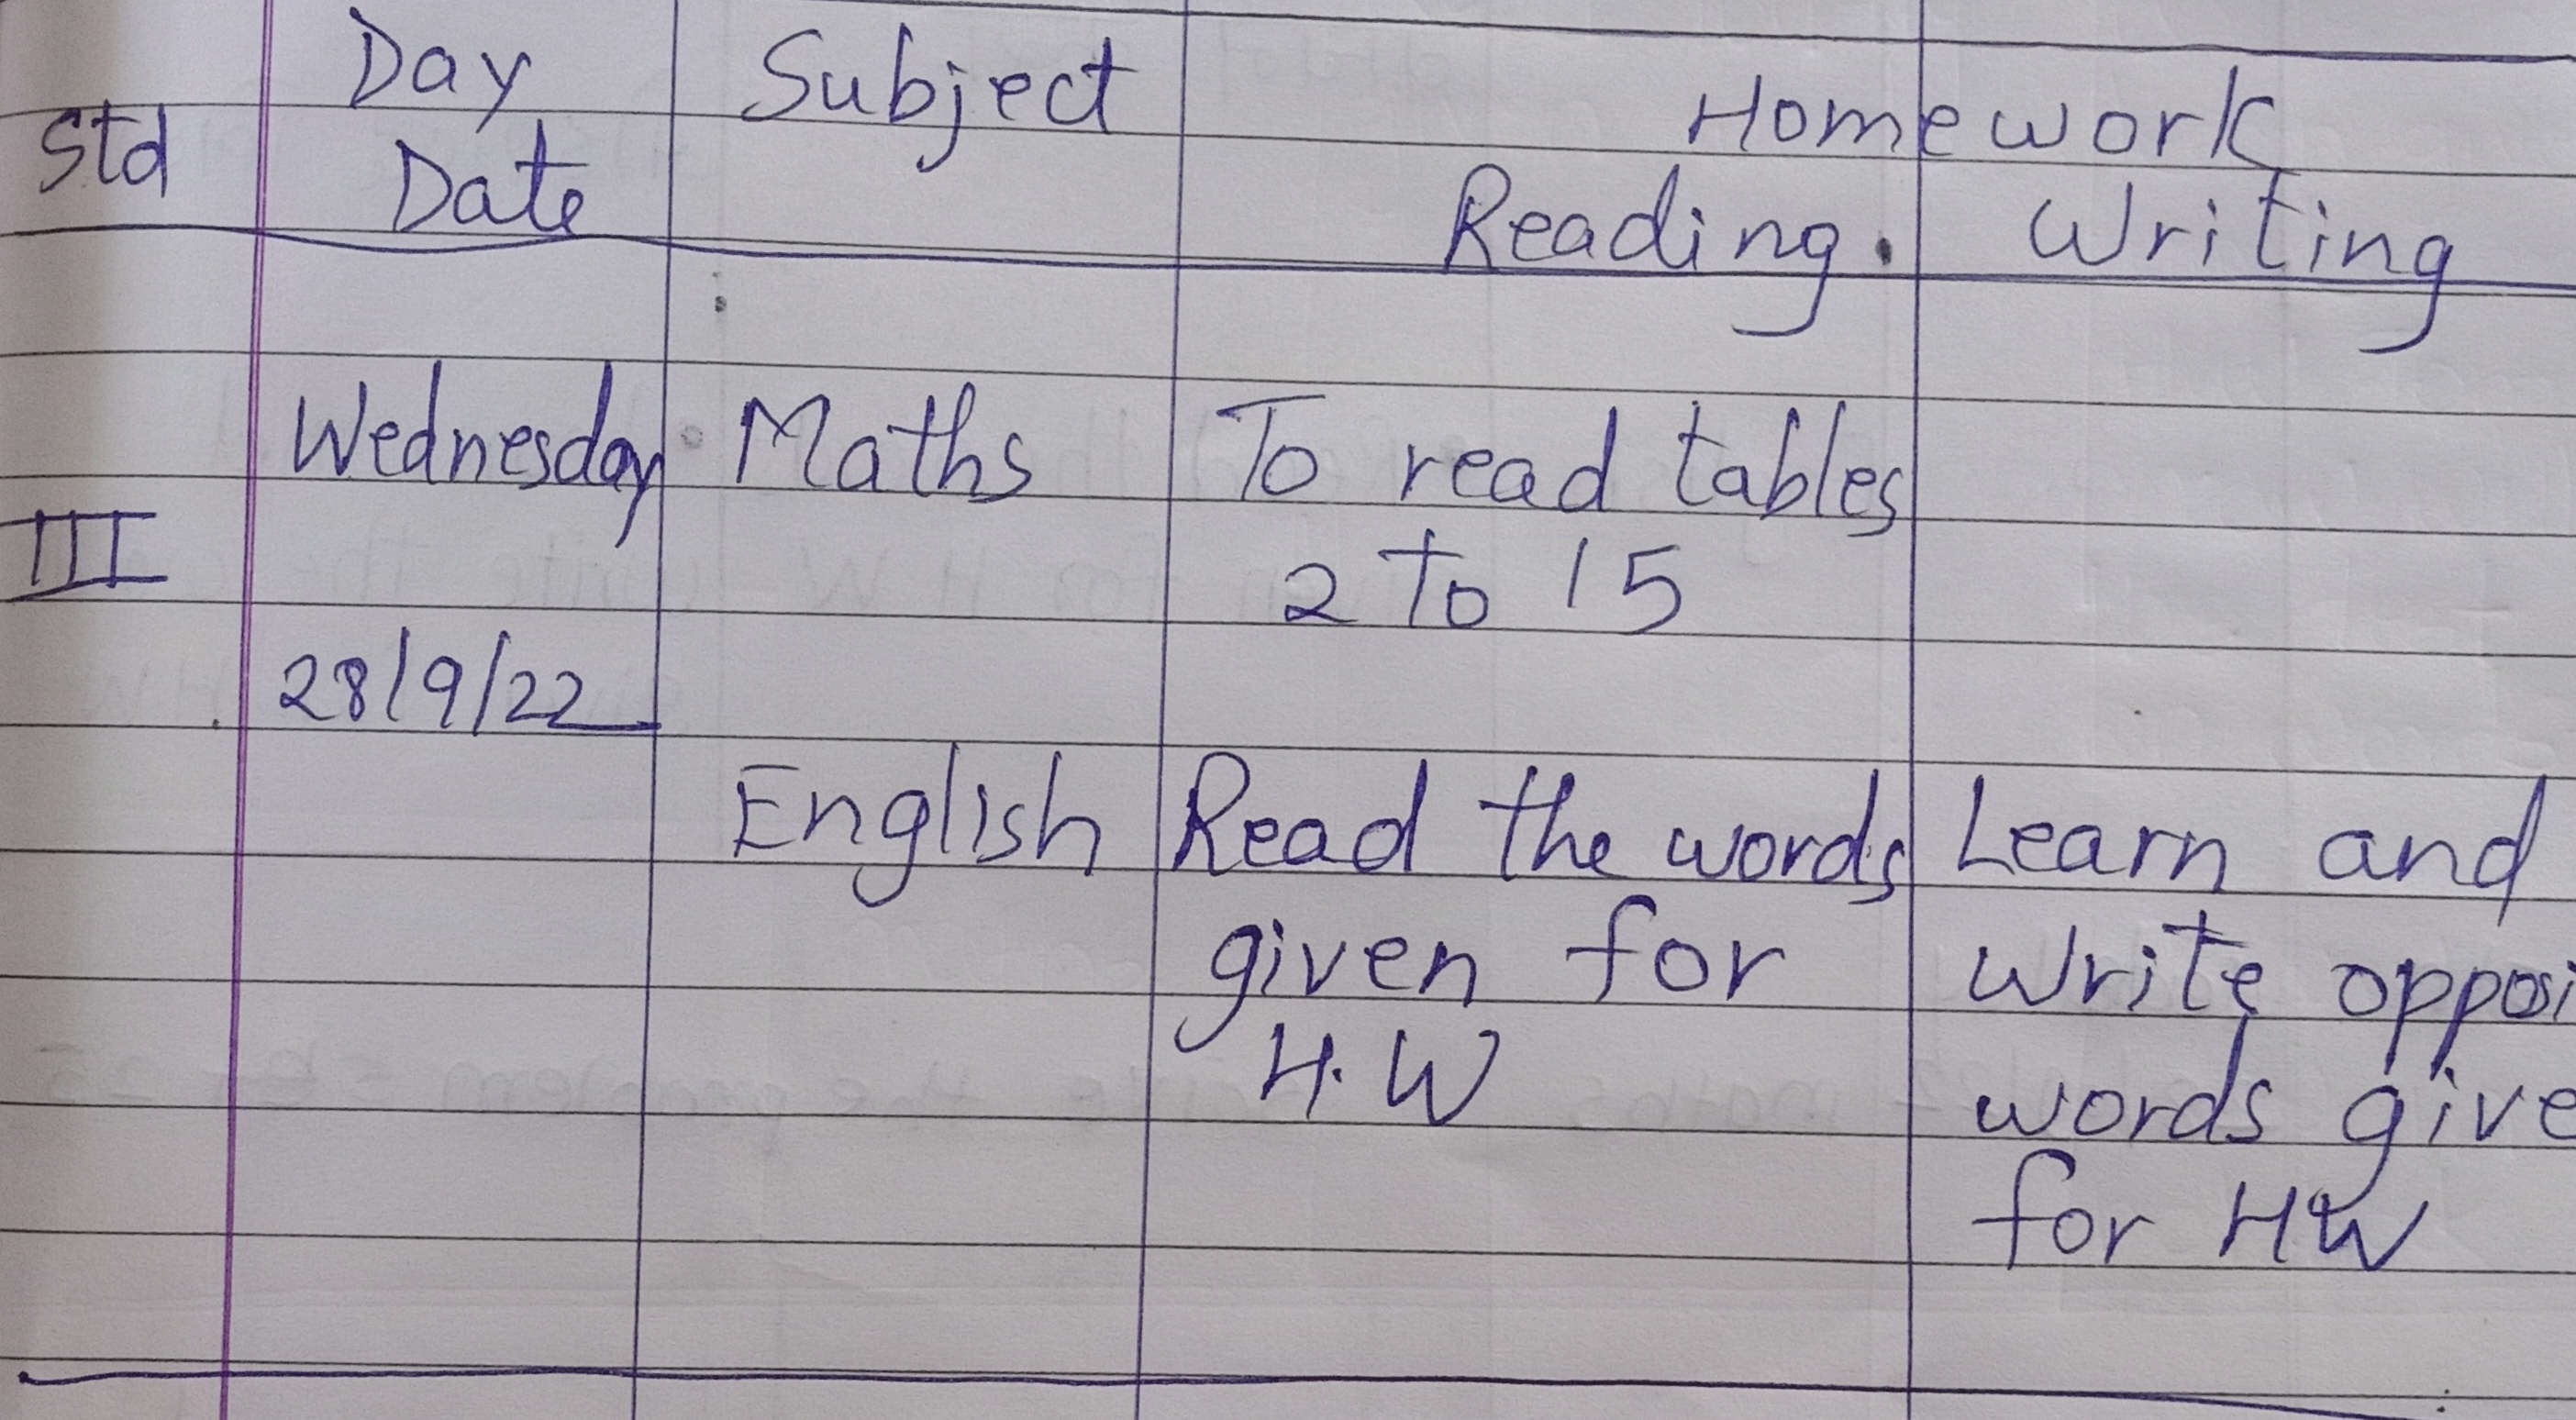 Std
Day
Date
Subject
Homework
Reading. Writing
III
Wednesday
28/9/22
Maths
To read tables
2 To 15
English
Read the words
given for
H.W
Learn and
write opposi
words give
for HW